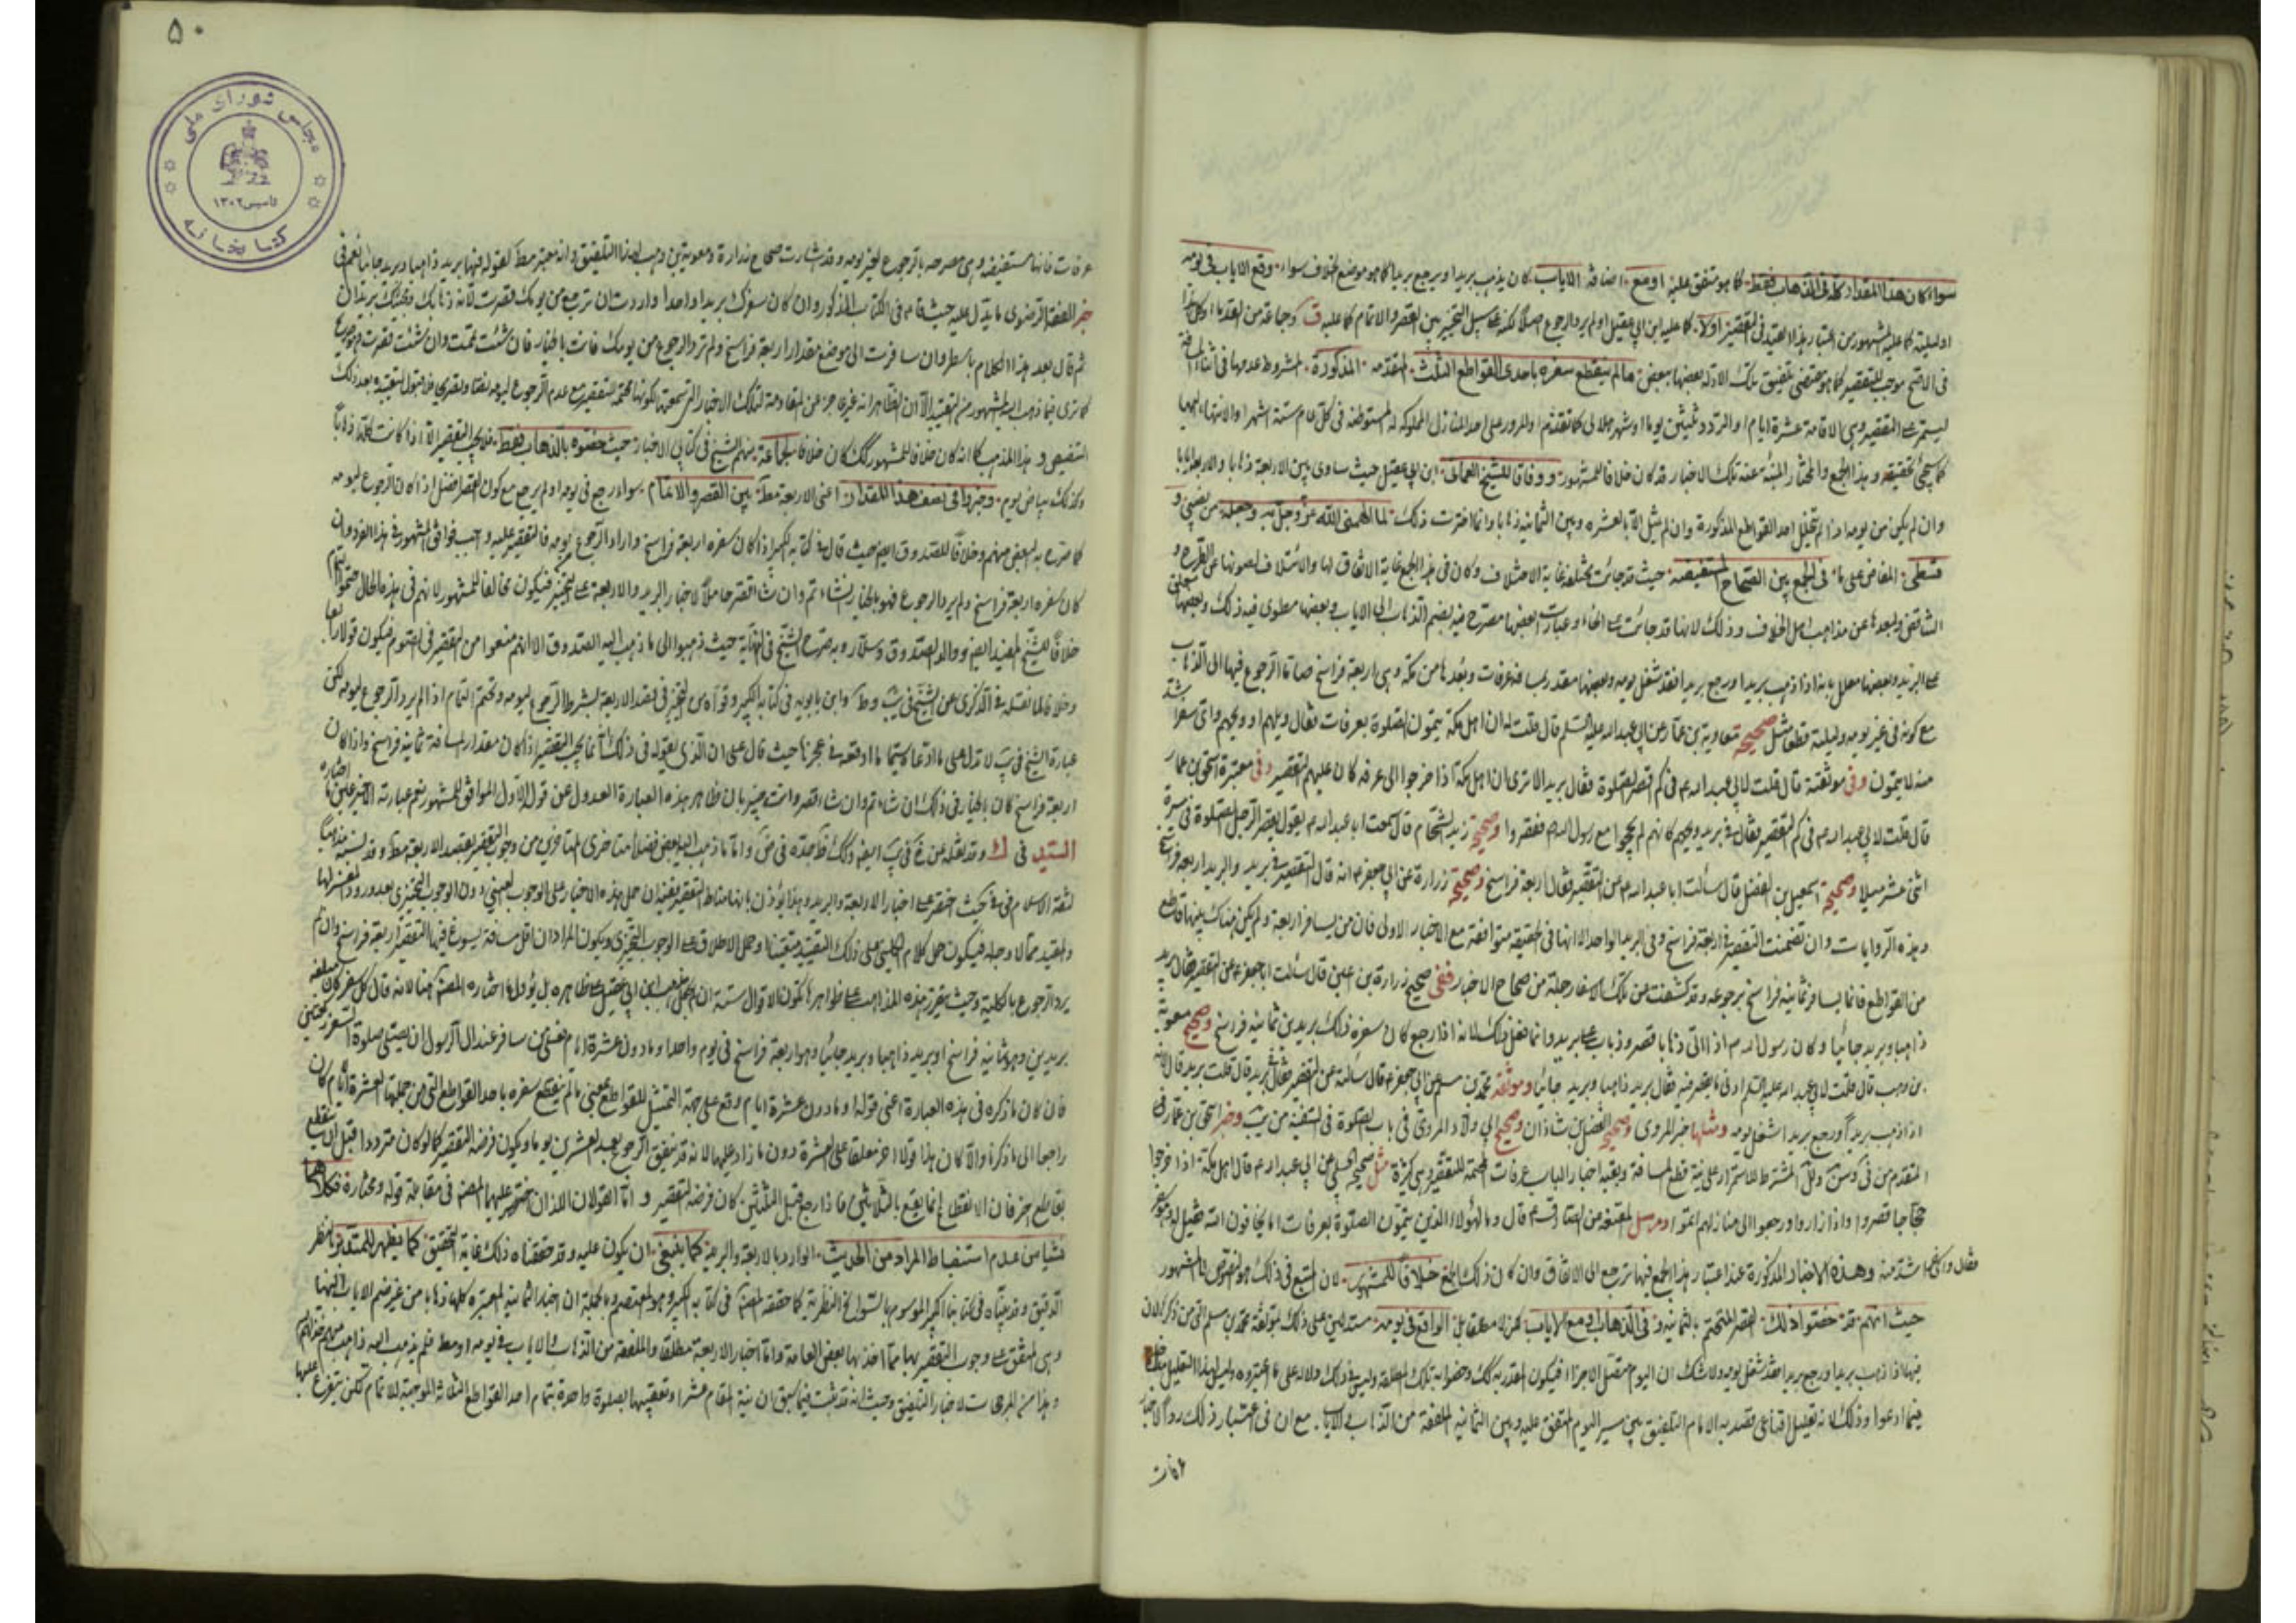 سواء كان هذا المقدار كله فى الذهاب فقط كما هو متفق عليه او مع اضافة الاياب كان يذهب بريدا ويرجع بريدا كما هو موضع الخلاف سواء وقع الاياب فى يومه
او ليلته كما عليه المشهور من اعتبار هذا القيد فى التقصير اولا كما عليه ابن ابي عقيل او لم يرد الرجوع اصلا لكنه على سبيل التخيير بين القصر والاتمام كما عليه وجماعة من القدماء
موجب للتقصير كما هو مقتضى تلك الادلة بعضها ببعض ما لم ينقطع سفره باحدى القواطع الثلث المتقدمة المذكورة المشروط عدمها فى
ليستمر على التقصير وهى الاقامة عشرة ايام او التردد ثلثين يوما او شهر هلالى كما تقدم او المرور على احد المنازل المملوكة له المستوطنة فى كل عام ستة اشهر او الانتهاء اليها
كما سيجئ تحقيقه وهذا الجمع والمختار تلك الاخبار قد كان خلافا للمشهور ووفاقا للشيخ العماني ابن ابى عقيل حيث ساوى بين الاربعة ذهابا والاربعة ايابا
وان لم يكن من يومه اذا لم يتخلل احد القواطع المذكورة وبين الثمانية ذهابا وانما اخترت ذلك لما الهمنى الله عز وجل به وجعله من نصيبى و
قسطى المفاض على فى الجمع بين الصحاح المستفيضة حيث قد جائت مختلفة غاية الاختلاف وكان فى هذا الجمع غاية الاتفاق لها والائتلاف لصونها عن الطرح و
التناقض ولبعدها عن مذاهب اهل الخلاف وذلك لانها قد جائت على انحاء وعبارات بعضها مصرح فيه بضم الذهاب الى الاياب وبعضها مطوى فيه ذلك وبعضها
على البريد وبعضها معلل بانه اذا ذهب بريدا ورجع بريدا فقد شغل يومه وبعضها مقدر بعرفات وبعدها من مكة وهى اربعة فراسخ ضاما الرجوع فيها الى الذهاب
مع كونه فى غير يومه وليلته قطعا مثل صحيحة معاوية بن عمار عن ابى عبد الله عليه السلم قال قلت له ان اهل مكة يتمون الصلوة بعرفات فقال ويلهم او ويحهم واى سفر اشد
منه لا يتمون وفى موثقته قال قلت لابى عبد الله ع فى كم اقصر الصلوة فقال بريد الا ترى ان اهل مكة اذا خرجوا الى عرفة كان عليهم التقصير وفى معتبرة اسحق بن عمار
قال قلت لابى عبد الله ع فى كم التقصير فقال فى بريد ويحهم كانهم لم يحجوا مع رسول الله ص فقصروا وصحيح زيد الشحام قال سمعت ابا عبد الله ع يقول يقصر الرجل الصلوة فى مسيرة
اثنى عشر ميلا وصحيحة اسمعيل بن الفضل قال سألت ابا عبد الله ع عن التقصير فقال اربعة فراسخ وصحيحة زرارة عن ابى جعفر ع انه قال التقصير فى بريد والبريد اربعة فراسخ
وهذه الروايات وان تضمنت التقصير فى اربعة فراسخ وفى البريد الواحد الا انها فى الحقيقة متوافقة مع الاخبار الاولى فان من يسافر اربعة ولم يكن هناك بينها قاطع
من القواطع فانما يسافر ثمانية فراسخ برجوعه وقد كشفت عن تلك الاسفار جملة من صحاح الاخبار ففى صحيح زرارة بن اعين قال سألت ابا جعفر ع عن التقصير فقال بريد
ذاهبا وبريد جائيا وكان رسول الله ص اذا اتى ذبابا قصر وذباب على بريد وانما فعل ذلك لانه اذا رجع كان سفره ذلك بريدين ثمانية فراسخ وصحيح معوية
بن وهب قال قلت لابى عبد الله عليه السلم ادنى ما يقصر فيه فقال بريد ذاهبا وبريد جائيا وموثقة محمد بن مسلم عن ابى جعفر ع قال سألته عن التقصير فقال فى بريد قال قلت بريد قال انه
اذا ذهب بريدا ورجع بريدا شغل يومه ومثلها خبر المروى وصحيح الفضل بن شاذان وصحيح ابى ولاد المروى فى باب الصلوة فى السفينة من يب وخبر اسحق بن عمار
المتقدم على المشترط للاستمرار على نية قطع المسافة وبقية اخبار الباب عرفات المحتمة للتقصير وهى كثيرة مثل صحيحة الحلبى عن ابى عبد الله ع قال اهل مكة اذا خرجوا
حجاجا قصروا واذا زاروا ورجعوا الى منازلهم اتموا ومرسل المقنعة عن الصادق ع قال وما لهؤلاء الذين يتمون الصلوة بعرفات اما يخافون الله فقيل له
فقال واى سفر اشد منه وهذه الاخبار المذكورة عند اعتبار هذا الجمع فيها ترجع الى الاتفاق وان كان ذلك الجمع خلافا للمشهور لان المتبع فى ذلك هو النصوص لا المشهور
حيث انهم قد خصوا ذلك القصر المتحتم بالثمانية فى الذهاب او مع الاياب لكن لا مطلقا بل الواقع فى يومه مستدلين على ذلك بموثقة محمد بن مسلم التى مر ذكرها الان
فيها اذا ذهب بريدا ورجع بريدا فقد شغل يومه ولا شك ان اليوم
فيما ادعوا وذلك لانه تعليل اقناعى قصد به الامام التلفيق بين سير اليوم المتفق عليه وبين الثمانية الملفقة من الذهاب والاياب مع ان فى اعتبار ذلك رد الاخبار
عرفات
٥٠
مجلس شوراى ملى
تاسيس ١٣٠٢
كتابخانه
عرفات فانها مستفيضة وهى مصرحة بالرجوع لغير يومه وقد شاركت صحاح زرارة ومعوية بن وهب لهذا التلفيق وانه معتبر مطلقا كقوله فيها بريد ذاهبا وبريد جائيا نعم فى
خبر الفقه الرضوى ما يدل عليه حيث قال ع فى الكتاب المذكور وان كان سفرك بريدا واحدا واردت ان ترجع من يومك قصرت لانه ذهابك ومجيئك بريدان
ثم قال بعد هذا الكلام باسطر وان سافرت الى موضع مقدار اربعة فراسخ ولم ترد الرجوع من يومك فانت بالخيار فان شئت تممت وان شئت قصرت
كما ترى فيما ذهب اليه المشهور من التقييد الا ان الظاهر انه غير عاجز عن المقاومة لتلك الاخبار التى سمعتها لكونها محتمة للتقصير مع عدم الرجوع ليومه
التقييد وهذا المذهب كما انه كان خلافا للمشهور كذلك كان خلافا لجماعة منهم الشيخ فى كتابى الاخبار حيث خصوه بالذهاب فقط فلا يجب التقصير الا اذا كانت كلها ذهابا
وكذلك بياض يوم وخيروا فى نصف هذا المقدار اعنى الاربعة مطلقا بين القصر والاتمام سواء رجع فى يومه او لم يرجع مع كون القصر افضل اذا كان الرجوع ليومه
كما صرح به البعض منهم وخلافا للصدوق ايضا حيث قال فى كتابه الكبير اذا كان سفره اربعة فراسخ واراد الرجوع من يومه فالتقصير عليه واجب فوافق المشهور فى هذا الفرد وان
كان سفره اربعة فراسخ ولم يرد الرجوع فهو بالخيار ان شاء تم وان شاء قصر حاملا لاخبار البريد والاربعة على التخيير فيكون مخالفا للمشهور لانهم فى هذه الحال حتموا التمام
خلافا للشيخ المفيد ايضا ووالد الصدوق وسلار وبه صرح الشيخ فى النهاية حيث ذهبوا الى ما ذهب اليه الصدوق الا انهم منعوا من التقصير فى الصوم فيكون قولا رابعا
وخلافا لما نقله فى الذكرى عن الشيخ فى يب وط وابن بابويه فى كتابه الكبير وقواه من التخيير فى قصد الاربعة بشرط الرجوع ليومه وتحتم التمام اذا لم يرد الرجوع ليومه لكن
عبارة الشيخ فى يب لا تدل على ما ادعاه حيث قال على ان الذى نقوله فى ذلك انما يجب التقصير اذا كان مقدار المسافة ثمانية فراسخ واذا كان
اربعة فراسخ كان بالخيار فى ذلك ان شاء تم وان شاء قصر وانت خبير بان ظاهر هذه العبارة العدول عن قوله الاول الموافق للمشهور نعم عبارته
السيد فى ك واما ما ذهب اليه بعض فضلاء متاخرى المتاخرين من وجوب التقصير بقصد الاربعة مطلقا وقد نسبه مذهبا
لثقة الاسلام فى فى حيث اقتصر على اخبار الاربعة والبريد وهذا يؤذن بانها مناط التقصير فيمكن حمل هذه الاخبار على الوجوب العينى دون الوجوب التخييرى
فيكون حمل كلام الكلينى على ذلك التقييد متعينا وحمل الاطلاق على الوجوب التخييرى ويكون المراد ان اقل مسافة يسوغ فيها التقصير اربعة فراسخ وان لم
يرد الرجوع بالكلية وحيث تقرر هذه المذاهب على ظواهرها تكون الاقوال ستة ان لم يحمل مذهب ابن ابى عقيل على ظاهره بل يؤول بما اختاره المصنف هنا لانه قال كل سفر كان مبلغه
بريدين وهو ثمانية فراسخ او بريد ذاهبا وبريد جائيا وهو اربعة فراسخ فى يوم واحد او ما دون عشرة ايام فعلى من سافر عند آل الرسول ان يصلى صلوة السفر ركعتين
فان كان ما ذكره فى هذه العبارة اعنى قوله او ما دون عشرة ايام وقع على جهة التمثيل للقواطع بمعنى ما لم ينقطع سفره باحد القواطع التى من جملتها العشرة ايام كان
راجعا الى ما ذكرنا والا كان هذا قولا اخر معلقا على العشرة دون ما زاد عليها لانه قد يتفق الرجوع بعد العشرين يوما ويكون فرضه التقصير كما لو كان مترددا قبل ان ينقطع
بقاطع اخر فان الانقطاع انما يقع بالثلثين فاذا رجع قبل الثلثين كان فرضه التقصير واما القولان اللذان اقتصر عليهما المصنف فى مقابلة قوله ومختاره فكلاهما
نشيا من عدم استنباط المراد من الحديث الوارد بالاربعة والبريد كما ينبغى ان يكون عليه وقد حققناه ذلك غاية التحقيق كما يظهر للمتدبر بالنظر
الدقيق وقد بيناه فى كتابنا الكبير الموسوم بالسوانح النظرية كما حققه المصنف فى كتابه الكبير وهو المعتمد وبالجملة ان اخبار الثمانية المعتبرة كلها ذهابا من غير ضم الاياب اليها
وهى المتفق على وجوب التقصير بها مما اخذ بها بعض العامة واما اخبار الاربعة مطلقا والملفقة من الذهاب والاياب فى يومه او مطلقا فلم يذهب اليه ذاهب منهم
وهذا من المرجحات لاخبار التلفيق وحيث انه قد ثبت فيما سبق ان نية المقام عشرا وتعقيبها بصلوة واحدة بتمام احد القواطع الثلاثة الموجبة للاتمام لكن يتفرع عليها